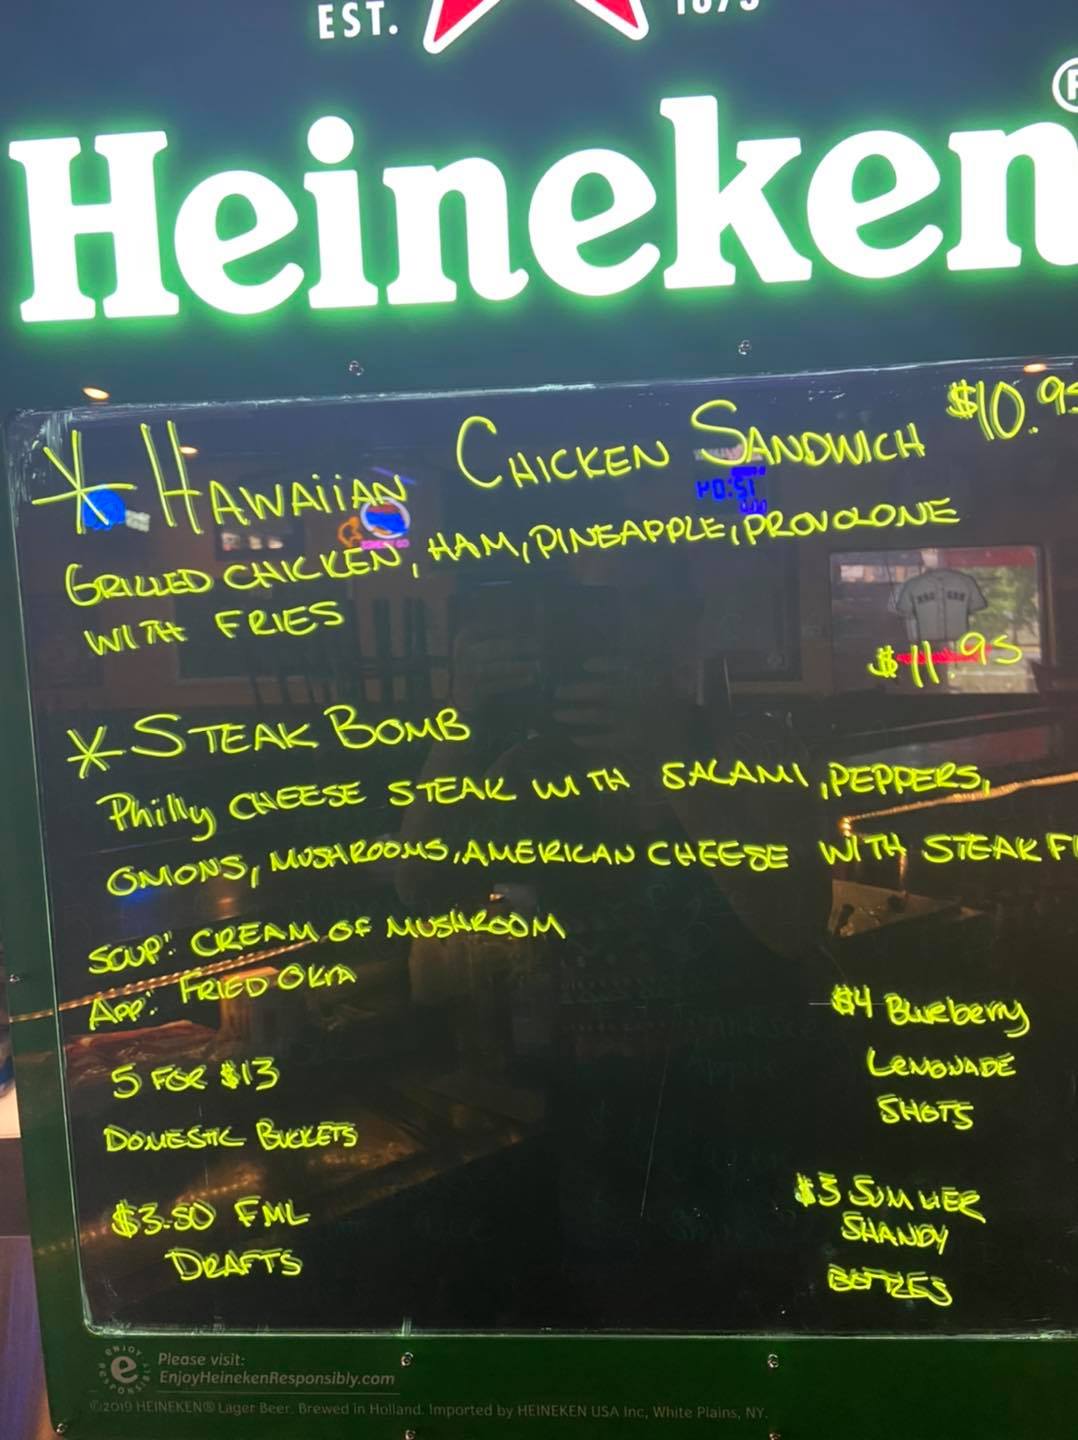 EST. 1873
Heineken®
* HAWAiiAN CHICKEN SANDWICH $10.95
GRILLED CHICKEN, HAM, PINEAPPLE, PROVOLONE
WITH FRIES
$11.95
* STEAK BOMB
Philly CHEESE STEAK WITH SALAMI, PEPPERS,
ONIONS, MUSHROOMS, AMERICAN CHEESE WITH STEAK
SOUP: CREAM OF MUSHROOM
APP: FRIED OKRA
$4 Blueberry
LEMONADE
SHOTS
5 FOR $13
DOMESTIC BUCKETS
$3.50 FML
DRAFTS
$3 SUMMER
SHANDY
BOTTLES
ENJOY RESPONSIBLY
Please visit:
EnjoyHeinekenResponsibly.com
©2019 HEINEKEN® Lager Beer. Brewed in Holland. Imported by HEINEKEN USA Inc, White Plains, NY.